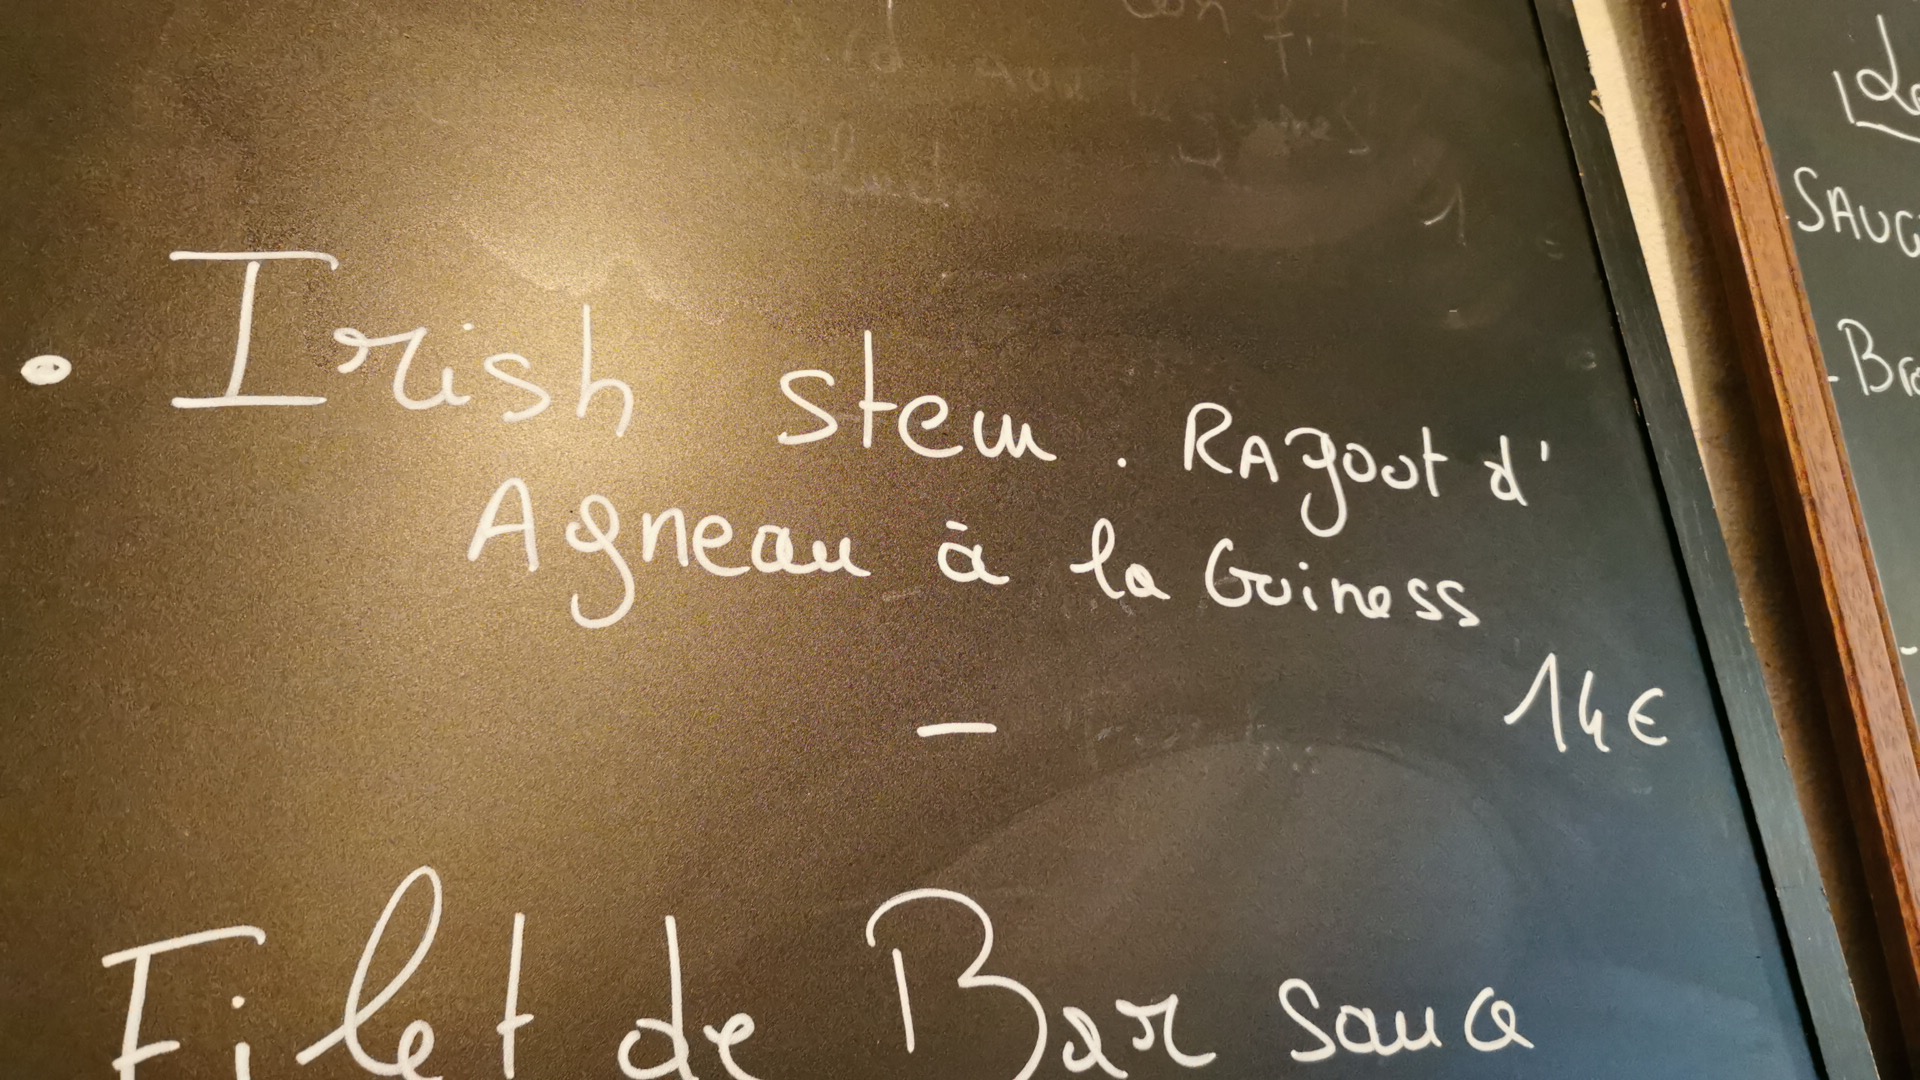 • Irish stew. RAgout d'
Agneau à la Guiness
14€
—
Filet de Bar sauce
SAUG
- Bro